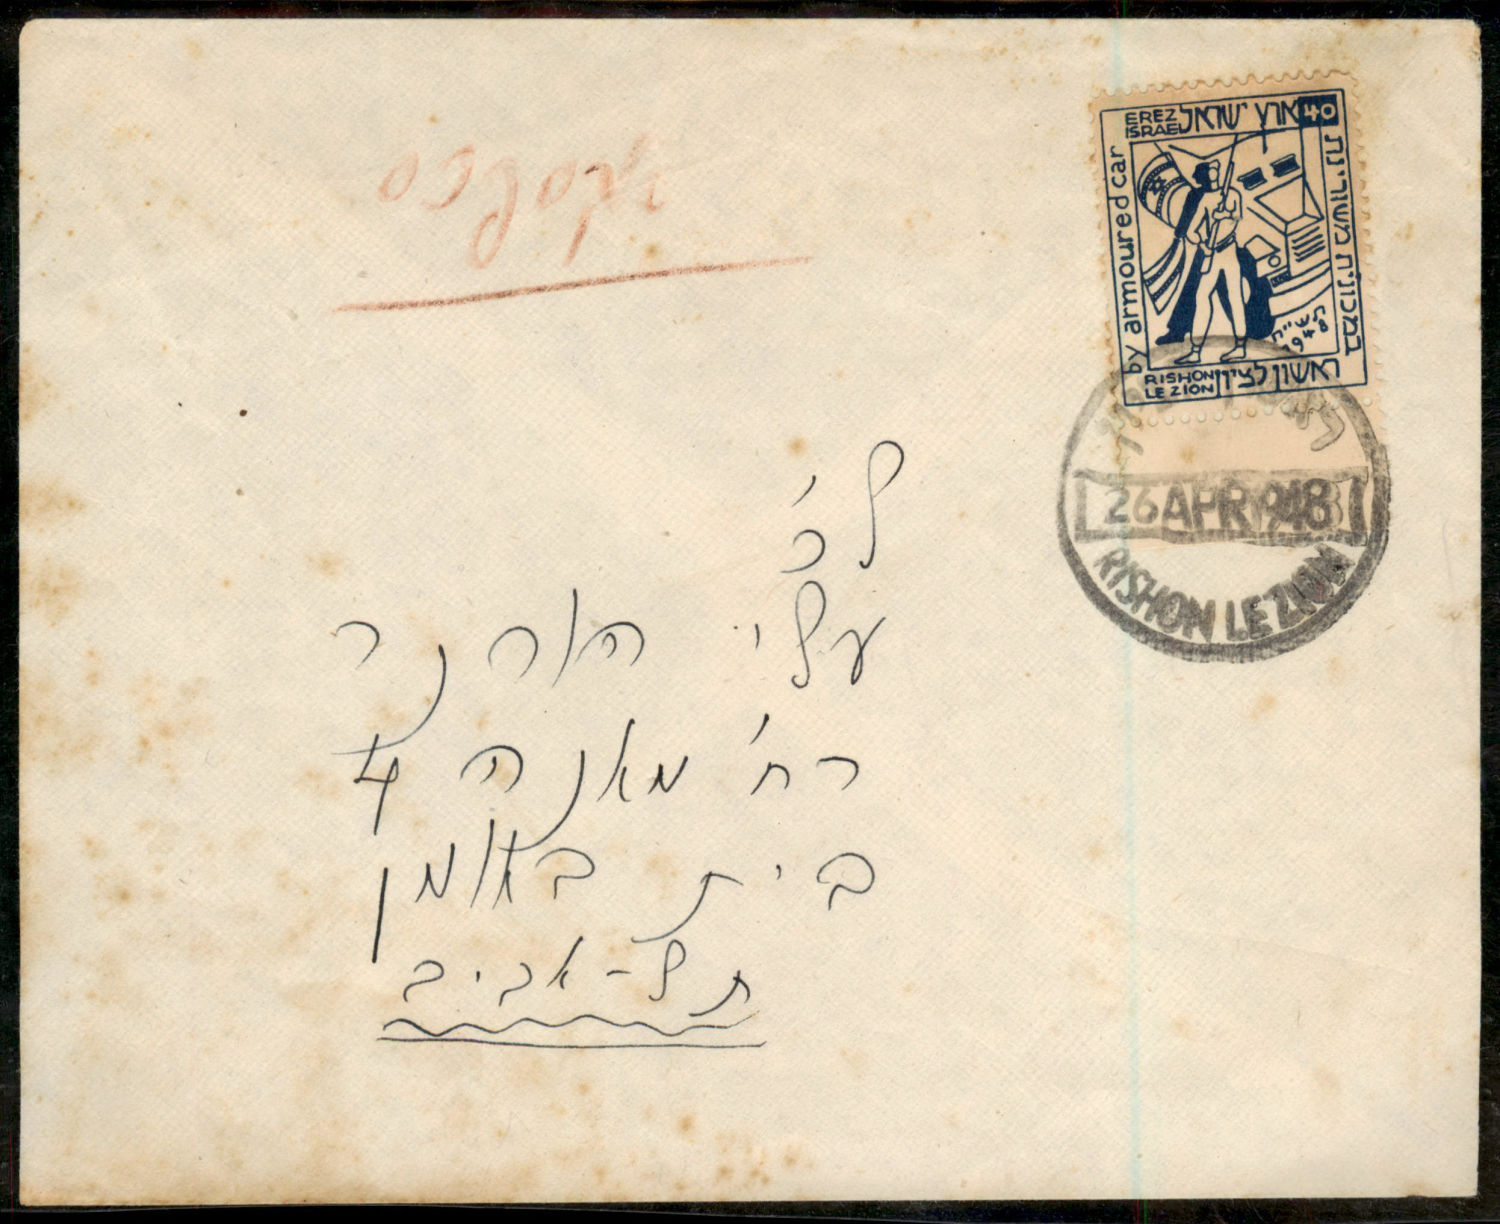 אקספרס
EREZ ISRAEL ארץ ישראל 40
by armoured car
במכונית משורינת
תש"ח
1948
RISHON LE ZION ראשון לציון
26 APR 1948
RISHON LE ZION
לכ'
עלי
רח' מאנה 4
בית באומן
תל-אביב